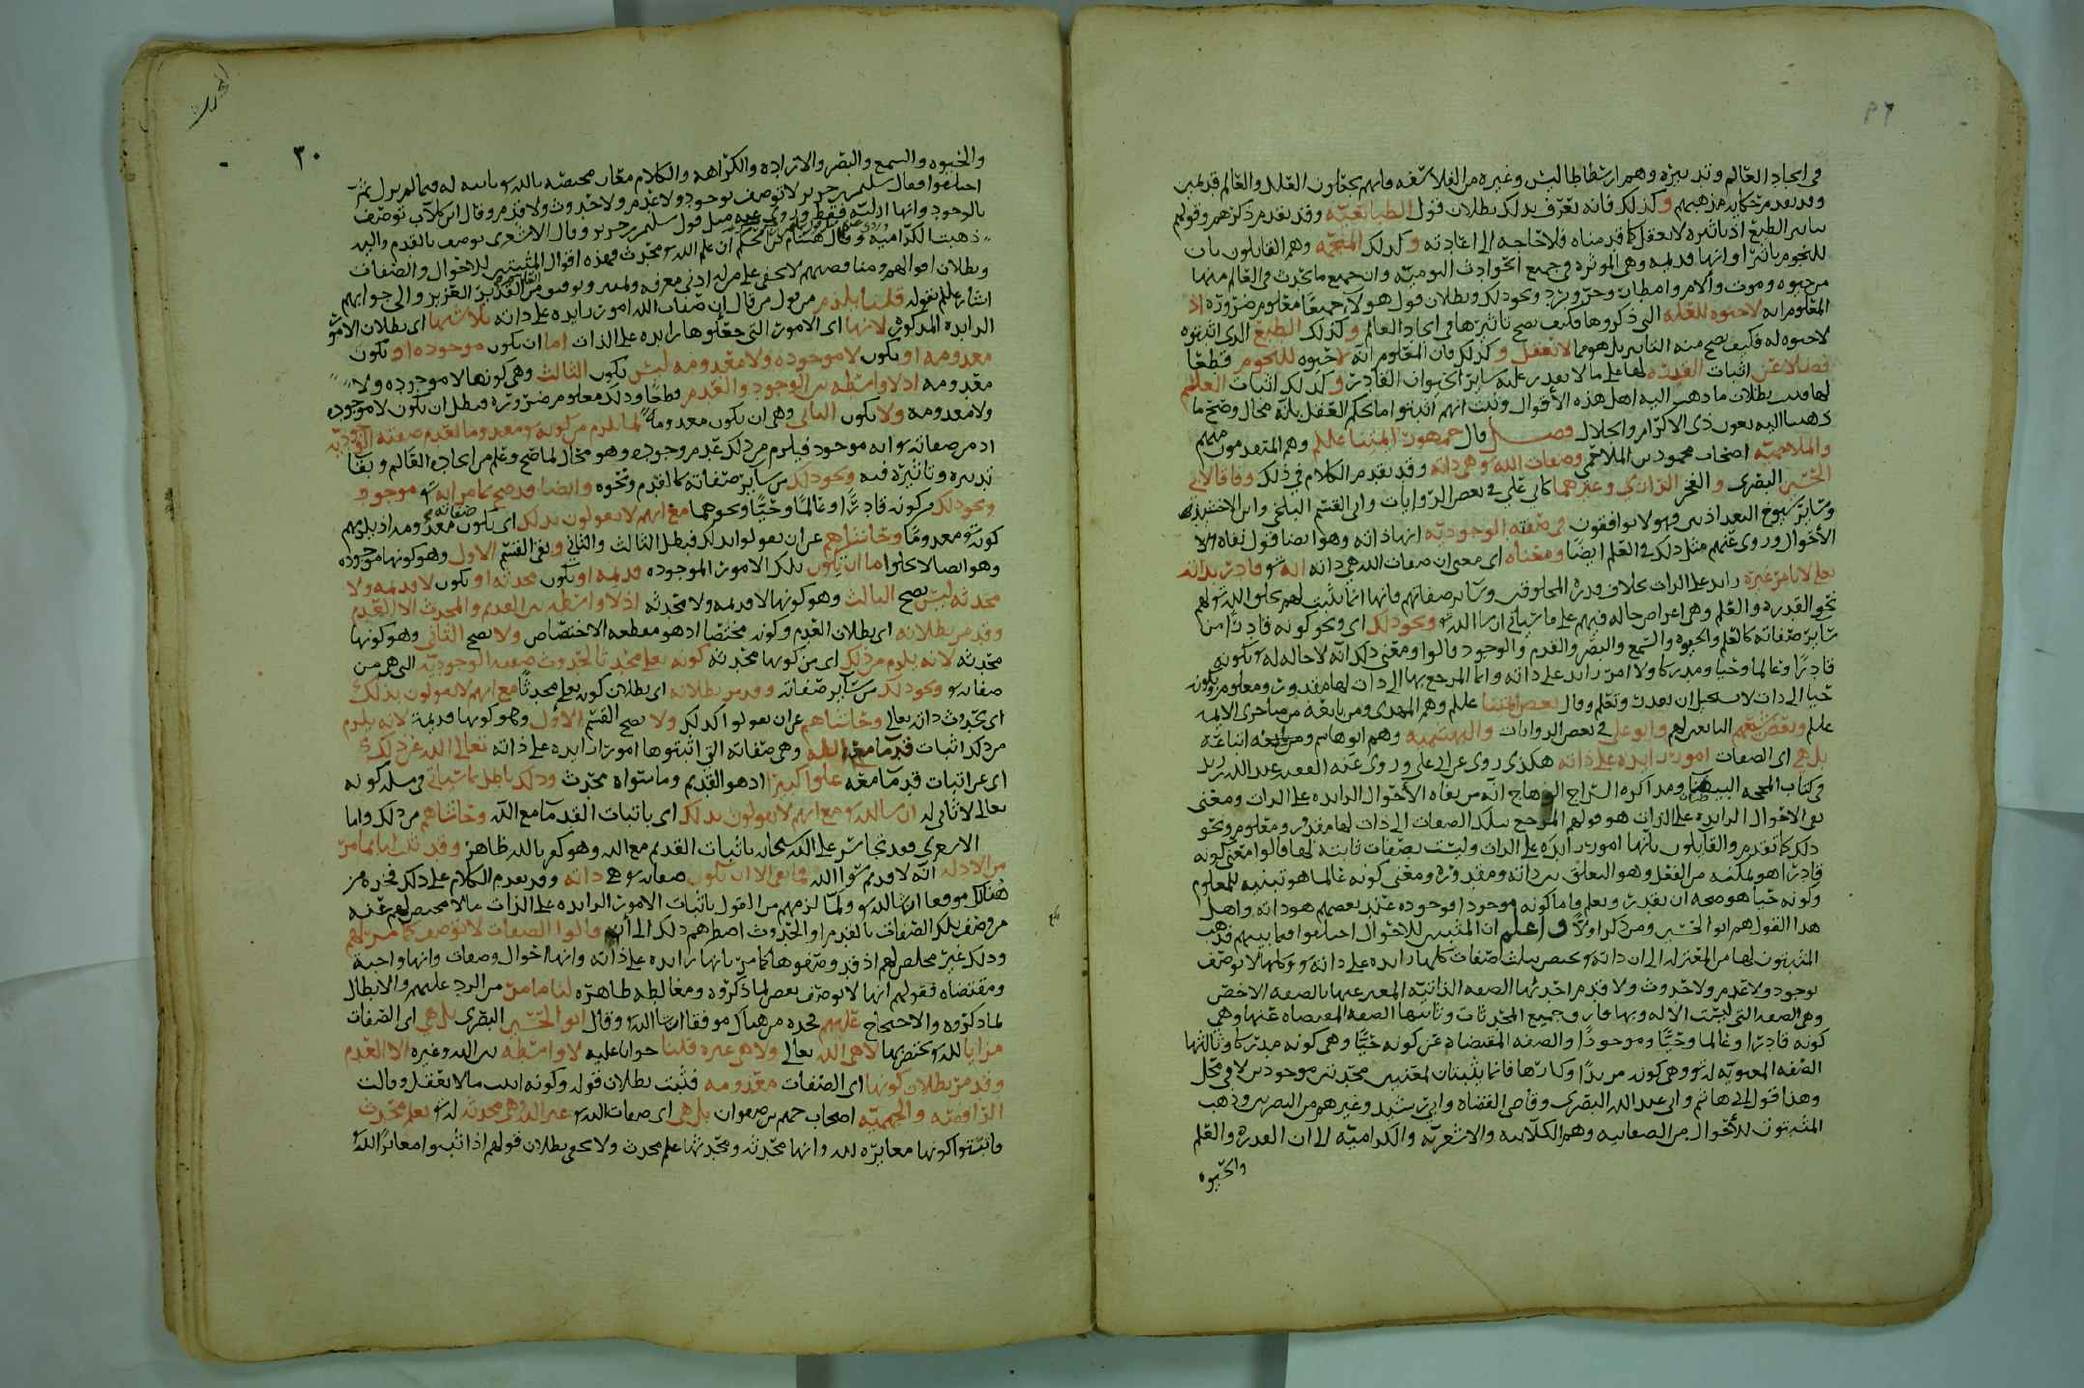 في ايجاد العالم وتدبيره وهم ارسطاطاليس وغيره من الفلاسفه فانهم يجعلون العله والعالم قديمين
وقد تقدم حكايه مذهبهم وكذلك فانه تعرف بذلك بطلان قول الطبايعيّه وقد تقدم ذكرهم وقولهم
بتاثير الطبع اذ تاثيره لا يعقل كما قدمناه فلا حاجه الى اعادته وكذلك المنجّمه وهم القايلون بان
للنجوم تاثيرا وانها قديمه وهي الموثره في جميع الحوادث اليوميّه وان جميع ما يحدث في العالم منها
من حيوه وموت والام وامطار وحرّ وبرد ونحو ذلك وبطلان قول هولا جميعًا معلوم ضروره اذ
المعلوم انه لا حيوه للعله التي ذكروها فكيف يصح تاثيرها في ايجاد العالم وكذلك الطبع الذي اثبتوه
لا حيوه له فكيف يصح منه التاثير بل هو مما لا يعقل وكذلك فان المعلوم انه لا حيوه للنجوم قطعًا
فضلا عن اثبات القدره لها على ما لا يقدر عليه ساير الحيوان القادر وكذلك اثبات العلم
لها فتبين بطلان ما ذهب اليه اهل هذه الأقوال وثبت انهم اثبتوا ما يحكم العقل بانّه محال وصح ما
ذهبنا اليه بعون ذي الاكرام والجلال فصل قال جمهور ايمتنا عللم وهم المتقدمون منهم
والملاحميّه اصحاب محمود بن الملاحمي وصفات الله هي ذاته وقد تقدم الكلام في ذلك وفاقا لابي
الحسين البصري والفخر الرازي وغيرهما كابي علي في بعض الروايات وابي القسم البلخي وابن الاخشيذ
وساير شيوخ البغداذيين فهولا يوافقون في صفته الوجوديّه انها ذاته وهو ايضا قول نفاه
الأحوال وروي عنهم مثل ذلك في العلم ايضًا ومعناه اي معنى ان صفات الله هي ذاته انه قادر بذاته
تعلى لا بامر غيره زايد على الذات بخلاف قدره المخلوقين وساير صفاتهم فانها انما تثبت لهم بخلق الله لهم
نحو القدره والعلم وهي اعراض حاله فيهم على ما سياتي ان شا الله ونحو ذلك اي ونحو كونه قادرًا من
ساير صفاته كالعلم والحيوه والسّمع والبصر والقدم والوجود قالوا ومعنى ذلك انّه لا حاله له بكونه
قادرًا وعالما وحيا ومدركا ولا امر زايد على ذاته وانما المرجع بها الى ذات لها مقدور ومعلوم وبكونه
حيا الى ذات لا يستحيل ان تقدر وتعلم وقال بعض ايمتنا عللم وهم المهدي ومن تابعه من متاخري الايمه
عللم وبعض شيعتهم التابعين لهم وابو علي في بعض الروايات والبهشميه وهم ابو هاشم ومن تابعه اتباعه
بل هي اي الصفات امور زايده على ذاته هكذى روى عن ابي علي وروى عنه الفقيه عبد الله بن زيد
دلك كما تقدم والقايلون بانها امور زايده على الذات وليست بصفات ثابته لها قالوا معنى كونه
قادرًا هو تمكنه من الفعل وهو التعلق بين ذاته ومقدوره ومعنى كونه عالما هو تبينه للمعلوم
وكونه حيا هو صحه ان يقدر ويعلم واما كونه موجودا فوجوده عند بعضهم هو ذاته واهل
هذا القول هم ابو الحسين ومن ذكر اولًا واعلم ان المثبتين للاحوال اختلفوا فيما بينهم فذهب
المثبتون لها من المعتزله الى ان ذاته تختص بثلث صفات كلها زايده على ذاته وكلها لا توصف
بوجود ولا عدم ولا حدوث ولا قدم احدها الصفه الذاتيّه المعبر عنها بالصفه الاخص
وهي الصفه التي ليست الا له وبها فارق جميع المحدثات وثانيها الصفه المقتضاه عنها وهي
كونه قادرًا وعالما وحيًّا وموجودًا والصفه المقتضاه عن كونه حيًّا وهي كونه مدركا وثالثها
الصّفه المعنويّه له وهي كونه مريدًا وكارها فانما يثبتان لمعنيين محدثين موجودين لا في محل
وهذا قول ابي هاشم وابي عبد الله البصري وقاضي القضاه وابي رشيد وغيرهم من البصريين وذهب
المثبتون للأحوال من الصفاتيه وهم الكلّابيه والاشعريّه والكراميّه الى ان القدره والعلم
والحيوه
٣٠
والحيوه والسمع والبصر والاراده والكراهه والكلام معان مختصّه بالله ثابته له فيما لم يزل ثم
اختلفوا فقال سليمن بن جرير لا توصف بوجود ولا عدم ولا حدوث ولا قدم وقال ابن كلاب توصف
بالوجود وانها ازليّه فقط
ذهبت الكراميّه وقال هشام بن الحكم ان علم الله محدث فهذه اقوال المثبتين للاحوال والصفات
وبطلان اقوالهم ومناقضتهم لا تخفى على من له ادنى معرفه
اشار عللم بقوله قلنا يلزم من قول من قال ان صفات الله امور زايده على ذاته تلاشيها اي بطلان الامور
الزايده المذكوره لانها اي الامور التي جعلوها زايده على الذات اما ان تكون موجوده او تكون
معدومه او تكون لا موجوده ولا معدومه ليس يكون الثالث وهي كونها لا موجوده ولا
معدومه اذ لا واسطه بين الوجود والعدم قطعًا وذلك معلوم ضروره فبطل ان تكون لا موجوده
ولا معدومه ولا يكون الثاني وهي ان تكون معدومه لما يلزم من كونه معدوما لعدم صفته الوجوديّه
اذ من صفاته انه موجود فيلزم من ذلك عدم وجوده وهو محال لما صح وعلم من ايجاده العالم وبقا
تدبيره وتاثيره فيه ونحو ذلك من ساير صفاته كالقدم ونحوه وايضا قد صح بما مر انه موجود
ونحو ذلك من كونه قادرًا وعالمًا وحيًّا ونحوهما مع انهم لا يقولون بذلك اي بكون صفاته معدومه اذ يلزمهم
كونه معدومًا وحاشاهم عن ان يقولوا بذلك فبطل الثالث والثاني وبقى القسم الاول وهو كونها موجوده
وهو ايضا لا يخلوا اما ان تكون تلك الامور الموجوده قديمه او تكون محدثه او تكون لا قديمه ولا
محدثه ليس يصح الثالث وهو كونها لا قديمه ولا محدثه اذ لا واسطه بين القديم والمحدث الا العدم
وقد مر بطلانه اي بطلان العدم وكونه مختصّا اذ هو مقطعه الاختصاص ولا يصح الثاني وهو كونها
محدثه لانه يلزم من ذلك اي من كونها محدثه كونه تعلى محدثا لحدوث صفته الوجوديّه التي هي من
صفاته ونحو ذلك من ساير صفاته وقد مر بطلانه اي بطلان كونه تعلى محدثًا مع انهم لا يقولون بذلك
اي بحدوث ذاته تعالى وحاشاهم عن ان يقولوا كذلك ولا يصح القسم الأول وهو كونها قديمة لانه يلزم
من ذلك اثبات قدما مع الله وهي صفاته التي اثبتوها امورًا زايده على ذاته تعالى الله عن ذلك
اي عن اثبات قدما معه علوا كبيرًا اذ هو القديم وما سواه محدث وذلك باطل بما سياتي في مسله كونه
تعالى لا ثاني له ان شا الله مع انهم لا يقولون بذلك اي باثبات القدما مع الله وحاشاهم من ذلك واما
الاشعري فقد تجاسر على الله سبحانه باثبات القديم مع الله وهو كفر بالله ظاهر وقد ثبت لنا بما مر
من الادله انه لا قديم سوا الله فما بقى الا ان تكون صفاته هي ذاته وقد تقدم الكلام على ذلك فخذه من
هنالك موفقا ان شا الله ولما لزمهم من القول باثبات الامور الزايده على الذات ما لا محيص لهم عنه
من وصف تلك الصفات بالقدم او الحدوث اضطرهم ذلك الى ان قالوا الصفات لا توصف كما مر لهم
وذلك غير مخلص لهم اذ قد وصفوها كما مر بانها زايده على ذاته وانها احوال وصفات وانها واجبة
ومقتضاه فقولهم انها لا توصف نقض لما ذكروه ومغالطه ظاهره لنا ما مر من الرد عليهم والابطال
لما ذكروه والاحتجاج عليهم فخذه من هنالك موفقا ان شا الله وقال ابو الحسين البصري بل هي اي الصّفات
مزايا لله يختص بها لا هي الله تعالى ولا هي غيره قلنا جوابا عليه لا واسطه بين الله وغيره الا العدم
وقد مرّ بطلان كونها اي الصّفات معدومه فثبت بطلان قوله وكونه اثبت ما لا يعقل وقالت
الرافضه والجهميّه اصحاب جهم بن صفوان بل هي اي صفات الله غير الله وهي محدثه له بعلم محدث
واثبتوا كونها مغايره لله وانها محدثه ومحدثها علم محدث ولا يخفى بطلان قولهم اذ اثبتوا مغايرًا لله